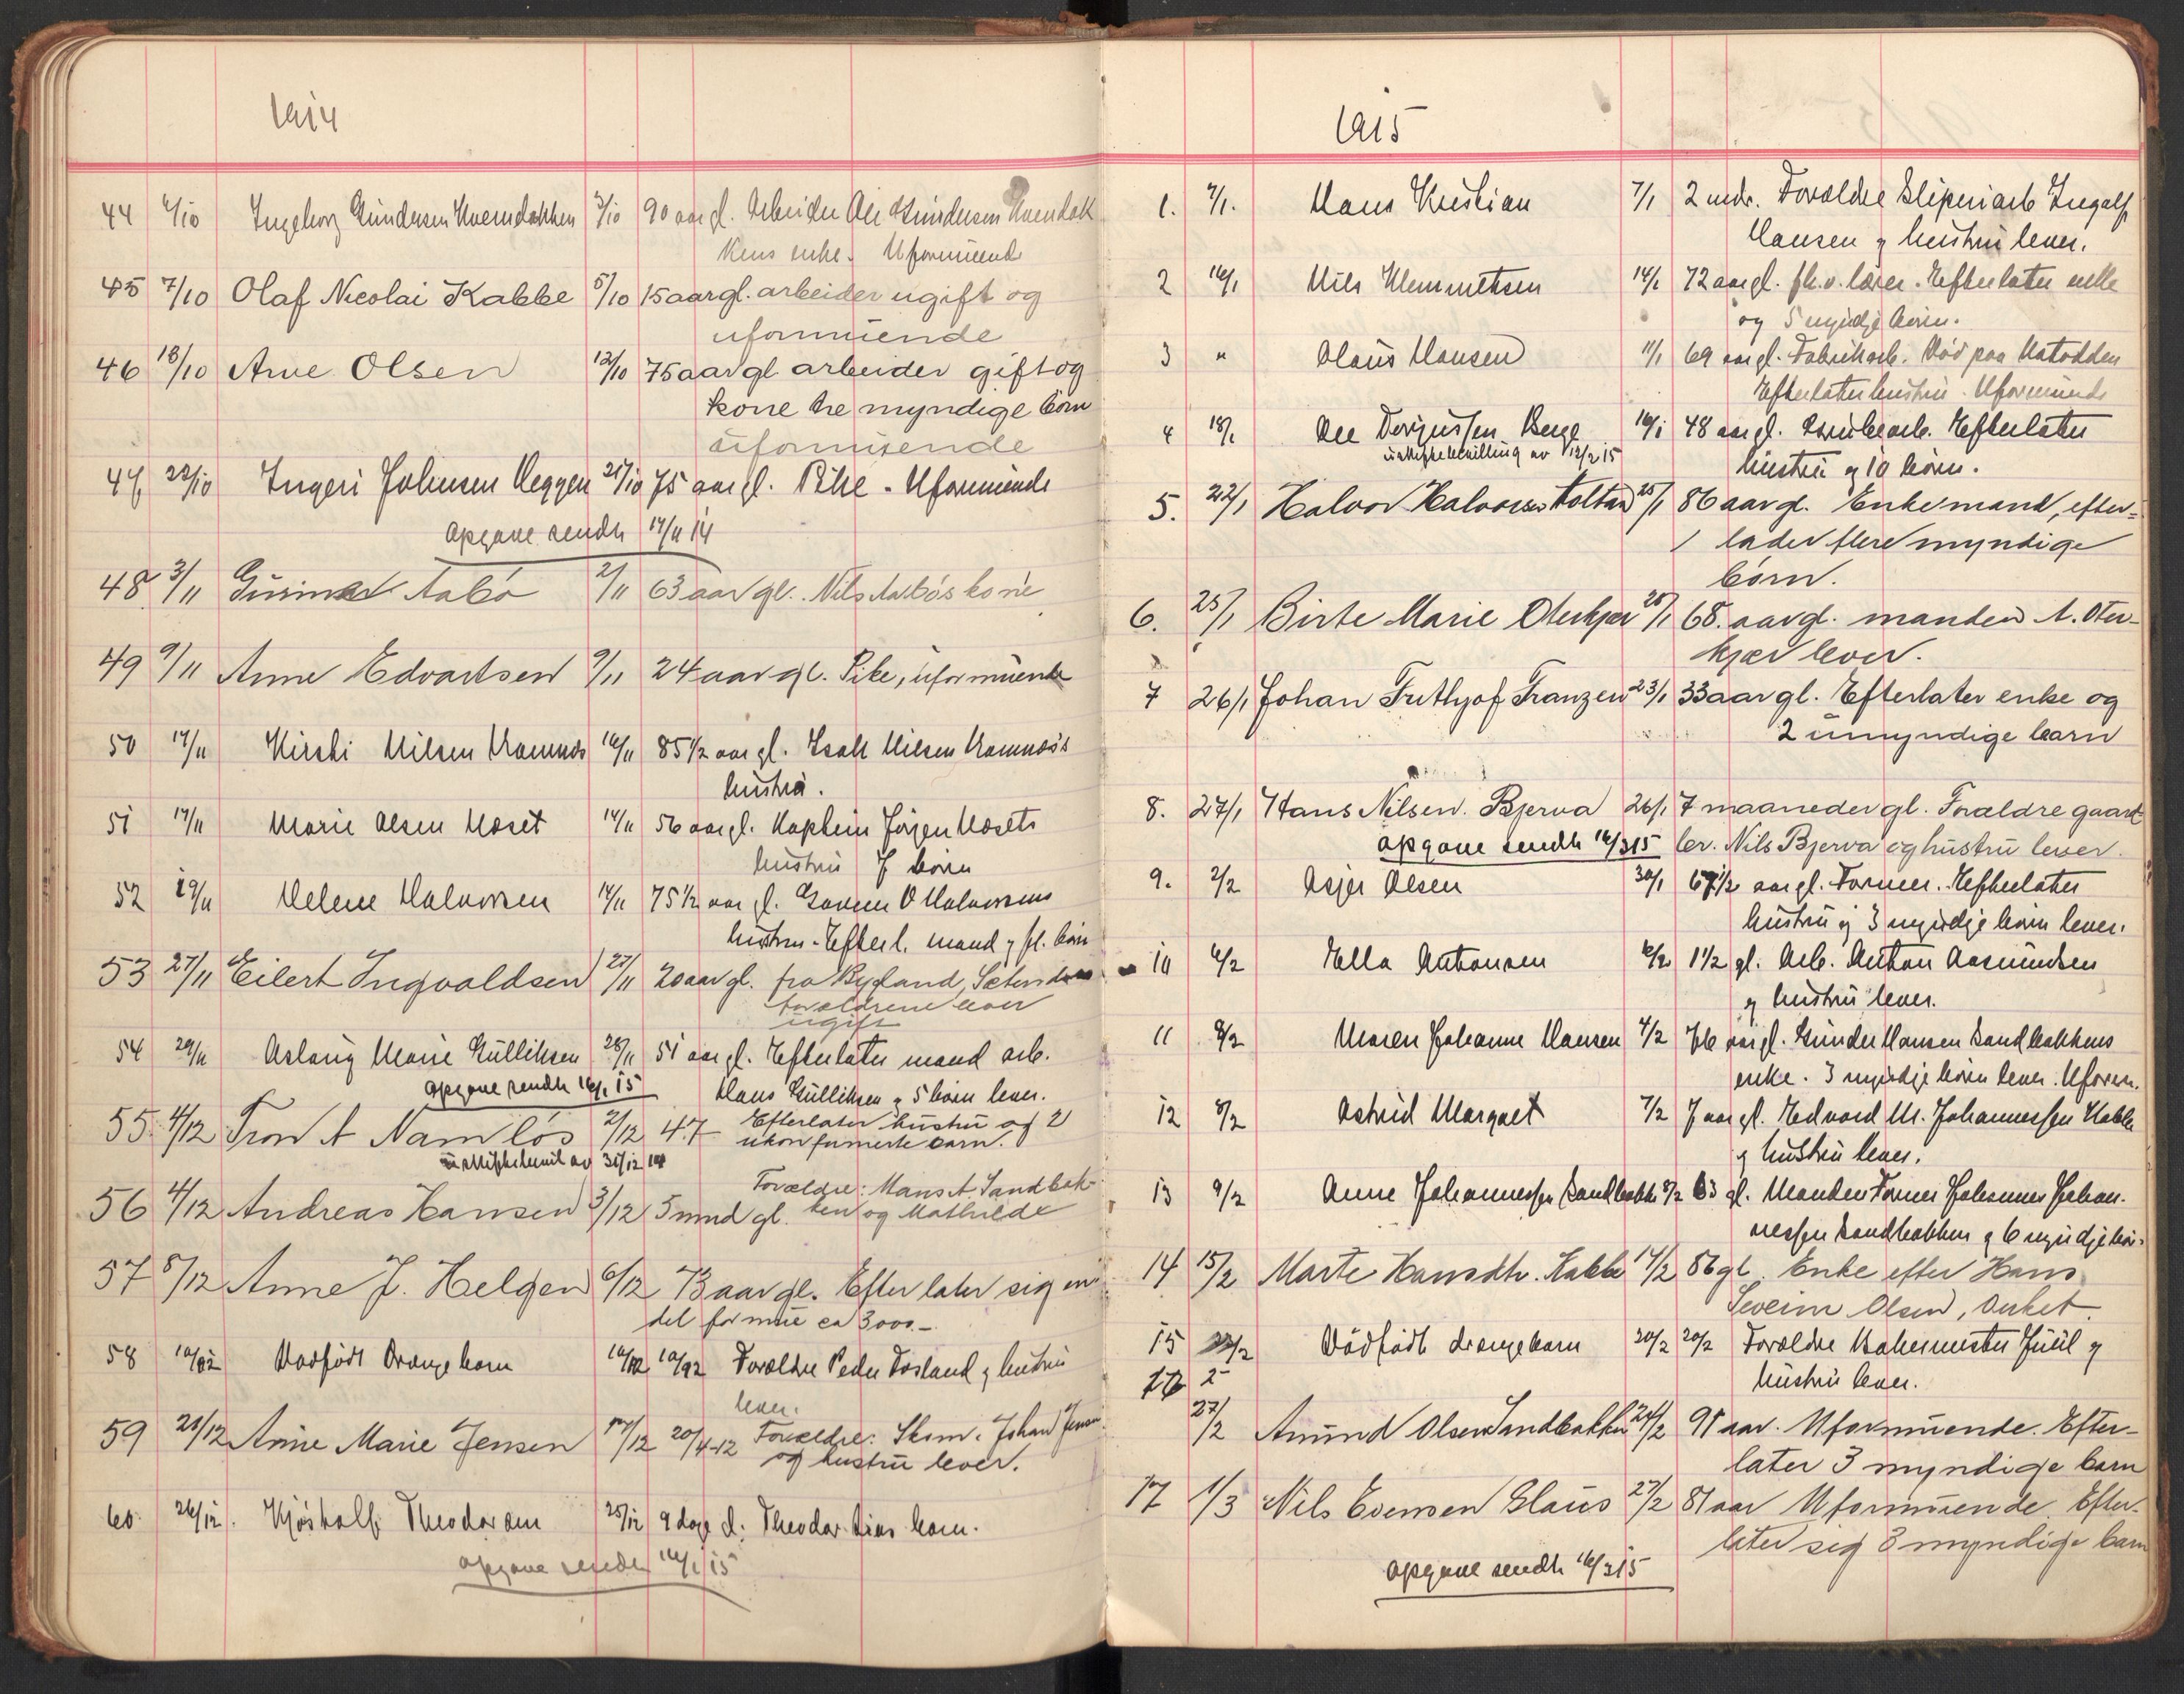 1914
44 6/10 Ingeborg Gundersen Kverndokken 3/10 90 aar gl. Arbeider Ole Gundersen Kverndok
kens enke. Uformuende
45 7/10 Olaf Nicolai Kabbe 5/10 15 aar gl. arbeider ugift og
uformuende
46 18/10 Arve Olsen 12/10 75 aar gl arbeider gift og
kone tre myndige börn
uformuende
47 22/10 Ingeri Johnsen Heggen 21/10 75 aar gl. Pike - Uformuende
opgave sendt 14/11 14
48 3/11 Aabö 2/11 63 aar gl. Nils Aabös kone
49 9/11 Anne Edvartsen 9/11 24 aar gl. Pike, uformuende
50 17/11 Kirsti Nilsen Komnæs 16/11 85 1/2 aar gl. Isak Nilsen Komnæs's
hustru.
51 17/11 Marie Olsen Moset 14/11 56 aar gl. Kaptein Jörgen Mosets
hustru 7 börn
52 19/11 Helene Halvorsen 14/11 75 1/2 aar gl. O Halvorsens
hustru - Efterl. mand og fl. börn
53 27/11 Eilert Ingvaldsen 27/11 20 aar gl. fra Bygland, Sætersdalen
forældrene lever
ugift
54 29/11 Aslaug Marie Gulliksen 28/11 51 aar gl. Efterlater mand arb.
opgave sendt 16/1 15 Hans Gulliksen og 5 börn lever.
55. 4/12 Tron A Namlös 2/12 47 Efterlater hustru og 2
ukonfirmerte barn.
uskiftebevil av 31/12 14
Forældre: Hans A. Sandbak-
56 4/12 Andreas Hansen 3/12 5 mnd gl. ken og Mathilde
57 8/12 Anne J. Helgen 6/12 73 aar gl. Efterlater sig en
del formue ca 3000.-
58 10/12 Dødfödt Drengebarn 10/12 10/12 Forældre Peder Fosland og hustru
lever.
59 21/12 Anne Marie Jensen 17/12 20/4-12 Forældre: Skom. Johan Jensen
og hustru lever.
60. 26/12. Theodorsen 25/12 9 dage gl. Theodor barn.
opgave sendt 16/1 15
1915
1. 7/1. Hans Kristian 7/1 2 mdr. Forældre Sliperiarb Ingolf
Hansen og hustru lever.
2 16/1 Nils Klemmetsen 14/1 72 aar gl. fh.v. lærer. Efterlater enke
og 5 myndje börn.
3 " Olaus Hansen 11/1 69 aar gl. Fabrikarb. Död paa Notodden
Efterlater hustru. Uformuende
4 18/1 Ole Torjussen Berge 16/1 48 aar gl. Grubearb. Efterlater
uskiftebevilling av 12/2 15 hustru og 10 börn.
5. 22/1 Halvor Halvorsen Holtan 25/1 86 aar gl. Enkemand, efter-
lader flere myndige
börn.
6. 25/1 Birte Marie Oterkjær 25/1 68. aar gl. manden A. Oter-
kjær lever.
7 26/1 Johan Frithjof Franzen 23/1 33 aar gl. Efterlater enke og
2 umyndige barn
8. 27/1 Hans Nilsen. Bjerva 26/1 7 maaneder gl. Forældre gaard-
opgave sendt 16/3 15 br. Nils Bjerva og hustru lever.
9. 2/2 Asjer Olsen 30/1 67 1/2 aar gl. Former. Efterlater
hustru og 3 myndje börn lever.
10 6/2 Ella Antonsen 6/2 1 1/2 gl. Arb. Anton Aasmundsen
og hustru lever.
11 8/2 Maren Johanne Hansen 4/2 76 aar gl. Gunder Hansen Sandbakkens
enke. 3 myndje börn lever. Uform.
12 8/2 Astrid Margret 7/2 7 aar gl. Edvard M. Johannessen Kabbe
og hustru lever.
13 9/2 Anne Johannessen Sandbakk 8/2 63 gl. Manden Former Johannes Johan-
nessen Sandbakken og 6 myndje börn.
14 15/2 Marte Hansdtr. Kabbe 14/2 86 gl. Enke efter Hans
Severin Olsen, Anket
15 22/2 Dödfödt drengebarn 20/2 20/2 Forældre Juul og
hustru lever.
16 2-
27/2 Amund Olsen Sandbakken 24/2 91 aar. Uformuende. Efter-
later 3 myndige barn
17 1/3 Nils Evensen Glaus 27/2 81 aar Uformuende. Efter-
later sig 3 myndige barn
opgave sendt 16/3 15